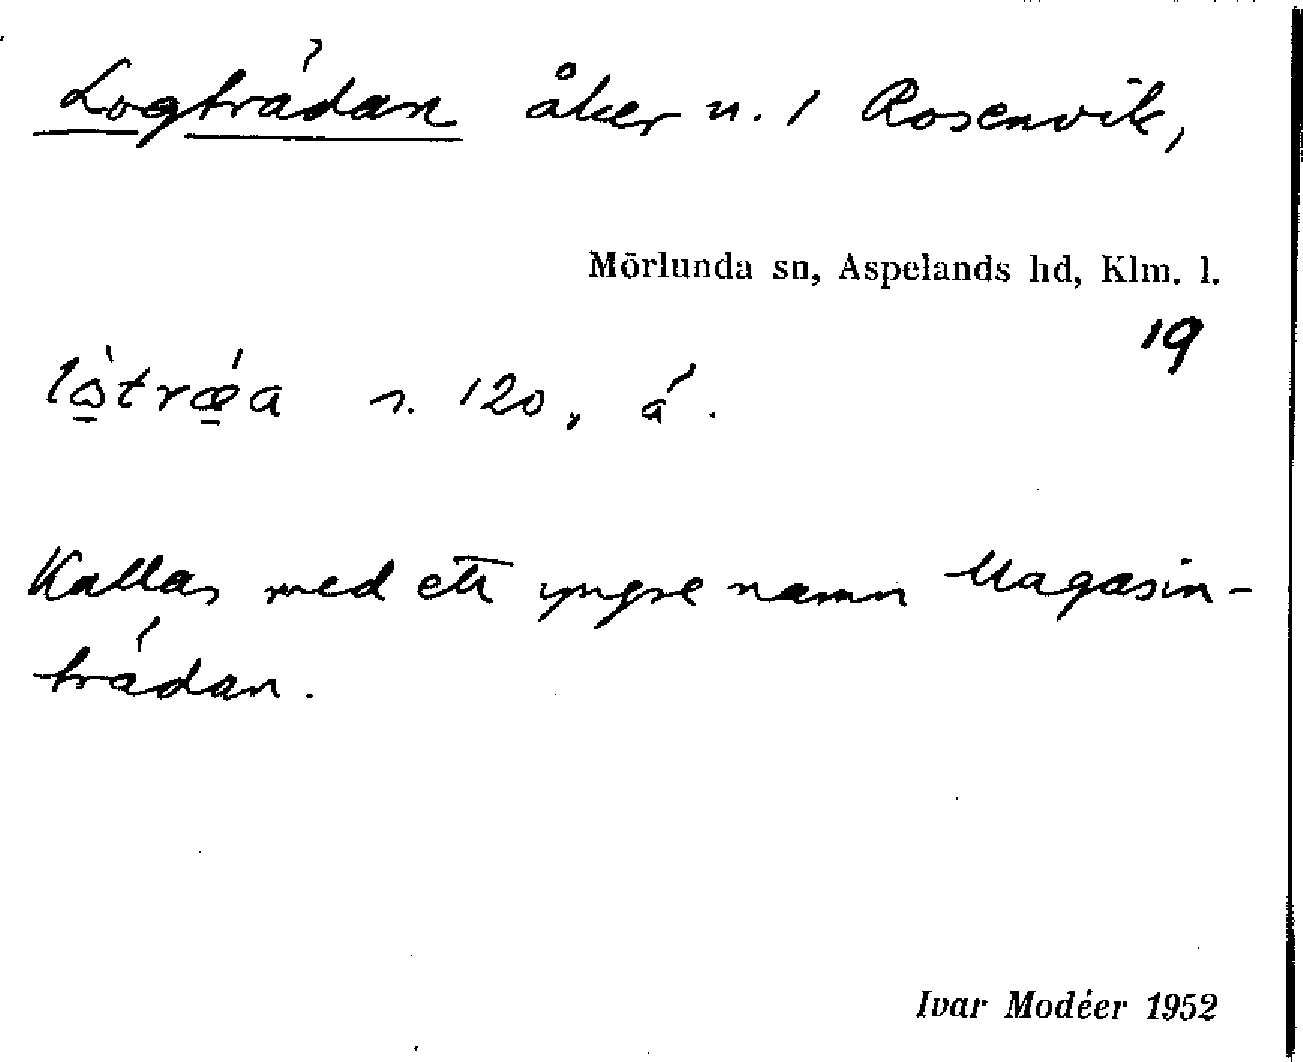 Logträdan åker n. 1 Rosenvik,
Mörlunda sn, Aspelands hd, Klm. l.
19
s. 120, á.
Kallas med ett yngre namn Magasin-
trädan.
Ivar Modéer 1952